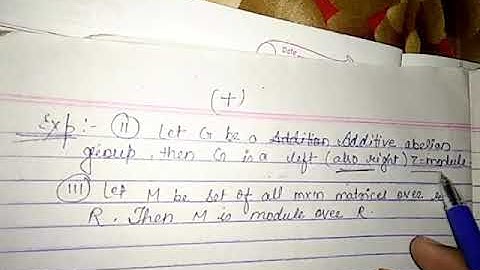 Date
(+)
Exp :- (II) Let G be a Addition Additive abelian
group, then G is a left (also right) Z-module
(III) Let M be set of all mxn matrices over
R. Then M is module over R.